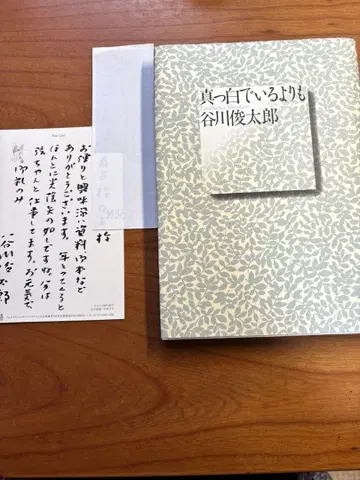 真っ白でいるよりも
谷川俊太郎
お便りと興味深い資料御本など
ありがとうございます。年とってくると
ほんとに光陰矢の如しですね、今は
ちゃんと仕事してます。お元気で、
御礼のみ
谷川俊太郎